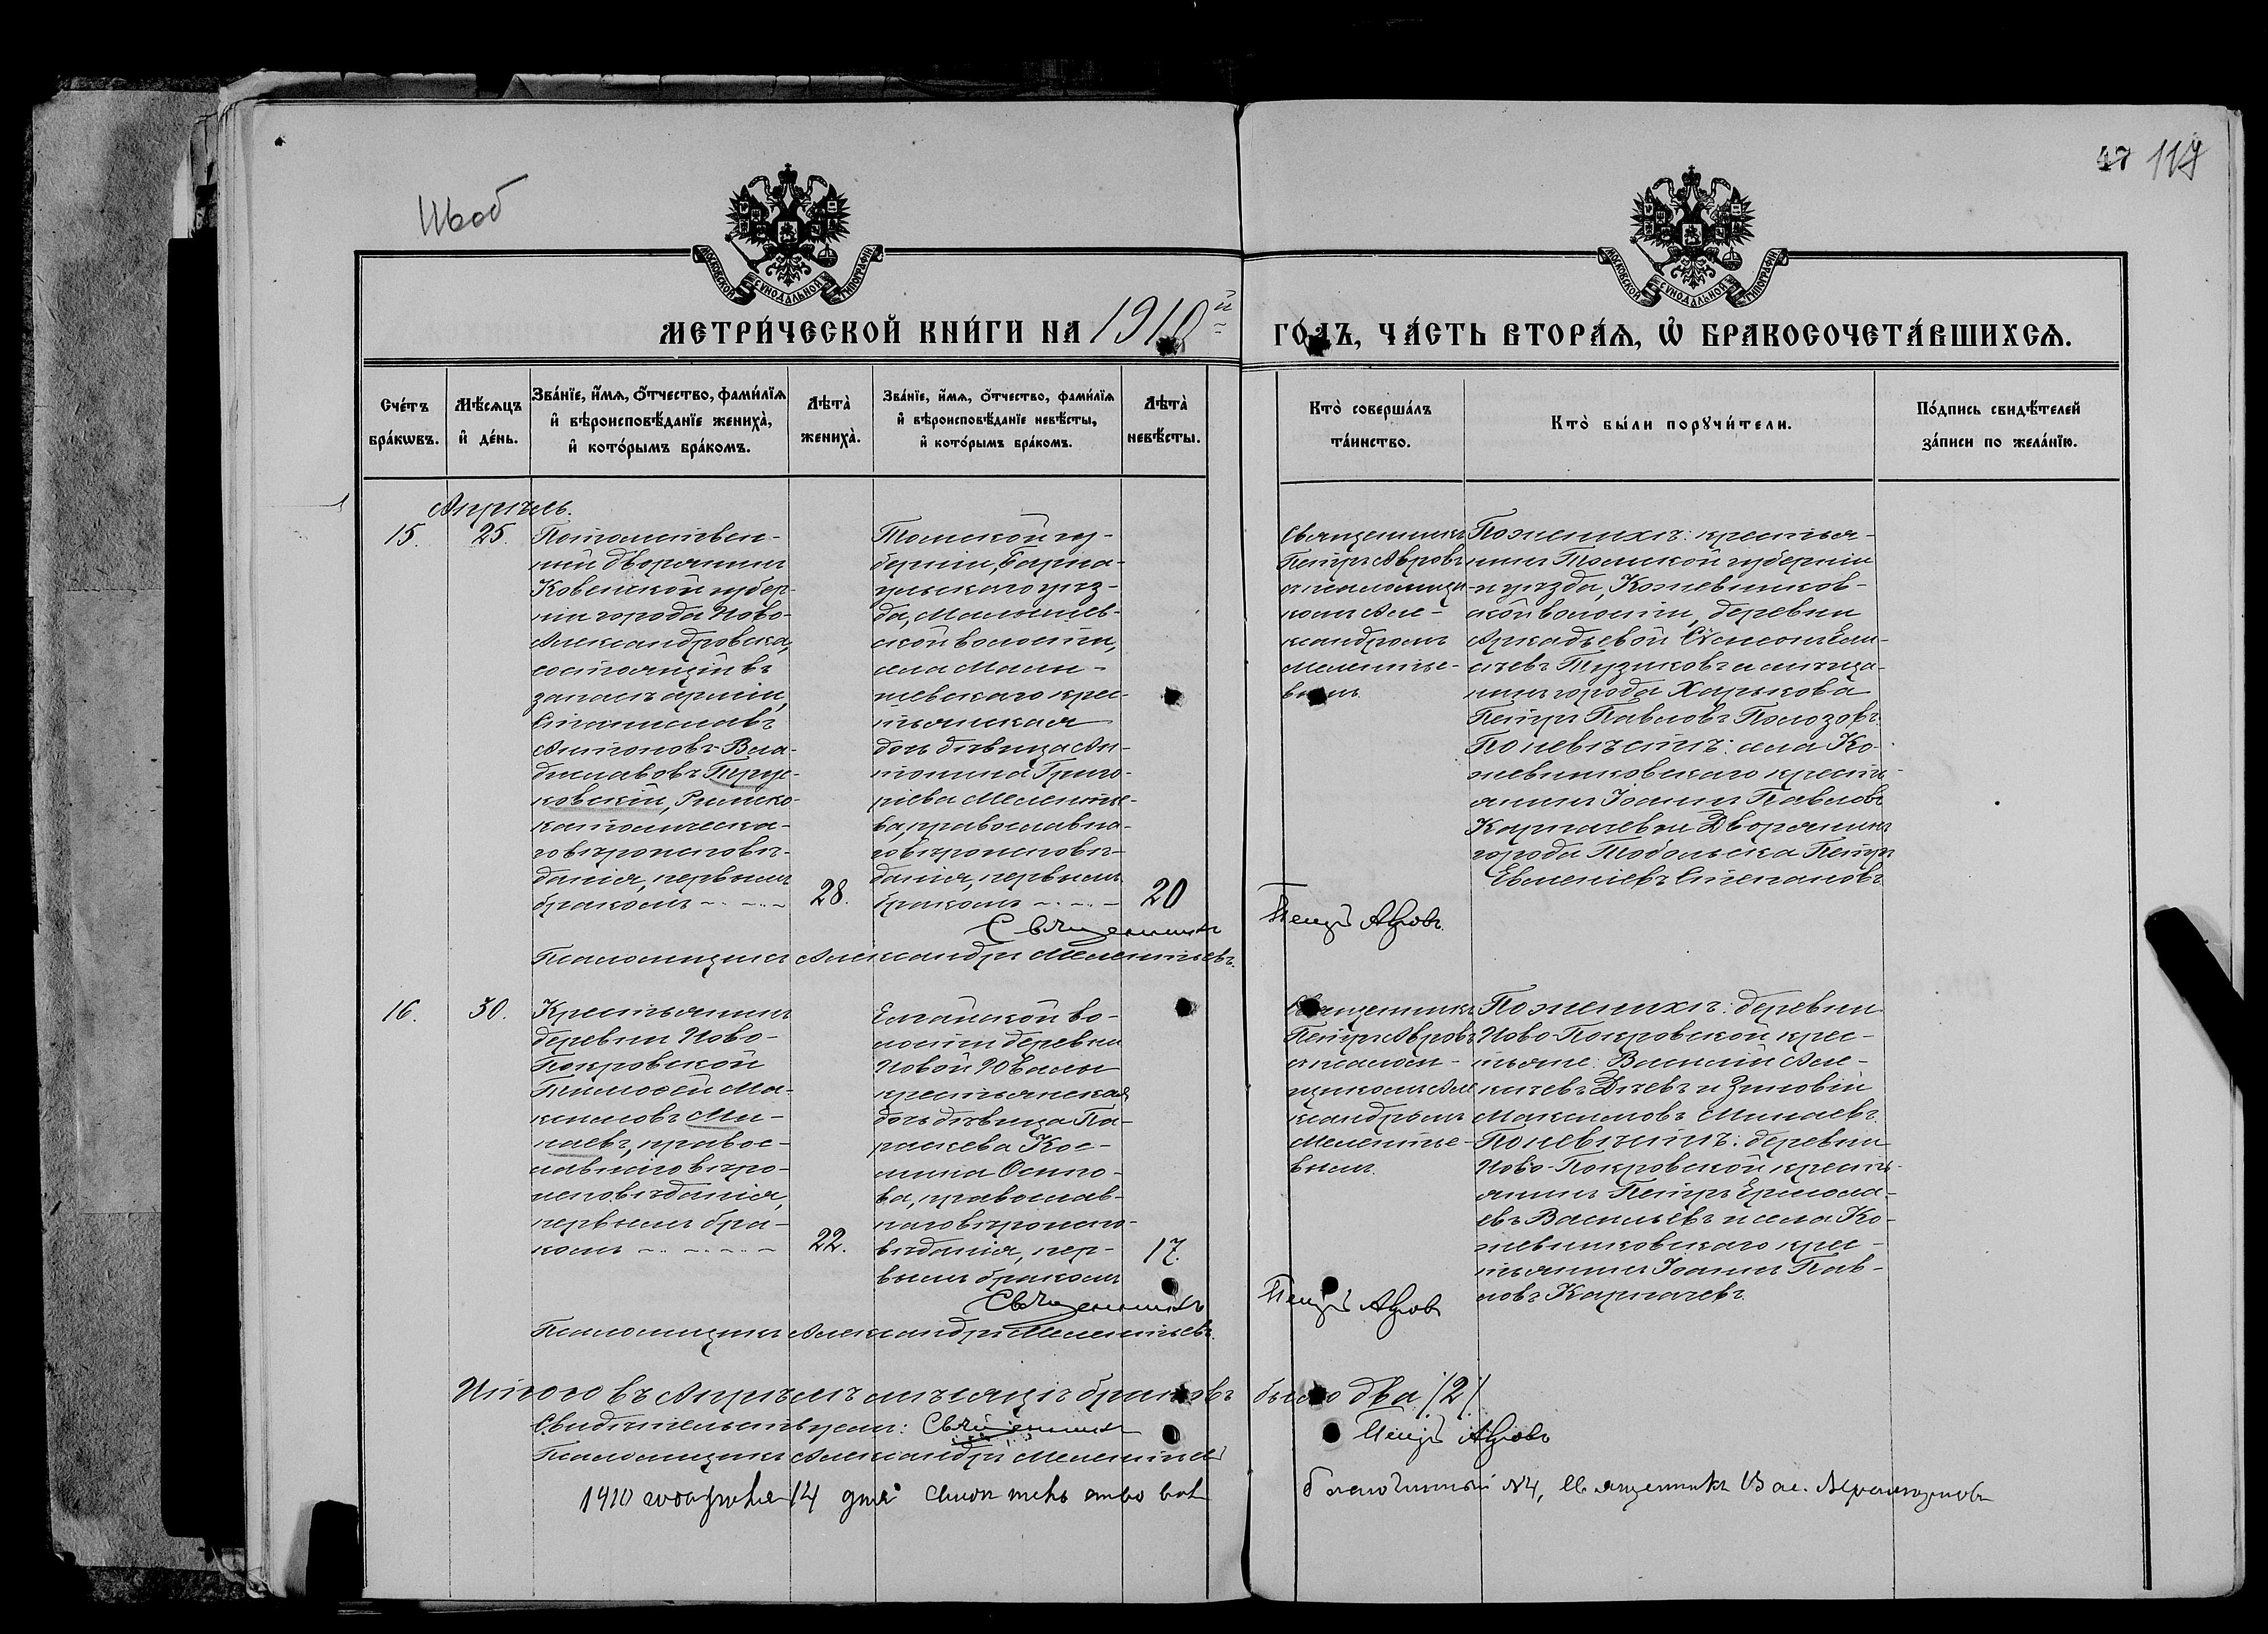 47 117
МОСКОВСКОЙ СѴНОДАЛЬНОЙ ТИПОГРАФІИ
МОСКОВСКОЙ СѴНОДАЛЬНОЙ ТИПОГРАФІИ
МЕТРИ́ЧЕСКОЙ КНИ́ГИ НА 1910й ГО́ДЪ, ЧА́СТЬ ВТОРА́Ѧ, Ѡ҆ БРАКОСОЧЕТА́ВШИХСѦ.
Сче́тъ
бра́кѡвъ.
Мѣ́сѧцъ
и҆ де́нь.
Зва́нїе, и҆́мѧ, о҆́тчество, фами́лїѧ
и҆ вѣроисповѣ́данїе жениха̀,
и҆ кото́рымъ бра́комъ.
Лѣта̀
жениха̀.
Зва́нїе, и҆́мѧ, о҆́тчество, фами́лїѧ
и҆ вѣроисповѣ́данїе невѣ́сты,
и҆ кото́рымъ бра́комъ.
Лѣта̀
невѣ́сты.
Кто̀ соверша́лъ
та́инство.
Кто̀ бы́ли порꙋчи́тели.
По́дпись свидѣ́телей
за́писи по жела́нїю.
Апрѣль.
15.
25.
Потомствен-
ный дворянинъ
Ковенской губер-
ніи города Ново-
Александровска,
состоящій въ
запасѣ арміи,
Станиславъ
Антоновъ Вла-
диславовъ
ковскій, Римско-
католическа-
го вѣроисповѣ-
данія, первымъ
бракомъ
28.
Томской гу-
берніи, Барна-
ульскаго уѣз-
да, Малышев-
ской волости,
села Малы-
шевскаго крес-
тьянская
дочь дѣвица Ан-
тонина Григо-
ріева Мелентье-
ва, православна-
го вѣроисповѣ-
данія, первымъ
бракомъ
20
Священникъ
Петръ Авровъ
съ псаломщи-
комъ Але-
ксандромъ
Мелентье-
вымъ.
По женихѣ: крестья-
нинъ Томской губерніи
и уѣзда, Кожевников-
ской волости, деревни
Аркадьевой Ели-
сѣевъ Тузиковъ и мѣща-
нинъ города Харькова
Петръ Павловъ Полозовъ.
По невѣстѣ: села Ко-
жевниковскаго кресть-
янинъ Іоаннъ Павловъ
Карпачевъ и Дворянинъ
города Тобольска Петръ
Евменіевъ Степановъ
Священникъ Петръ Авровъ.
Псаломщикъ Александръ Мелентьевъ.
16.
30.
Крестьянинъ
деревни Ново-
Покровской
Тимофей Ма-
ксимовъ Ми-
наевъ, правос-
лавнаго вѣро-
исповѣданія,
первымъ бра-
комъ
22.
Елгайской во-
лости деревни
Новой Ювалы
крестьянская
дочь дѣвица Па-
раскева Кос-
мина Осипо-
ва, православ-
наго вѣроиспо-
вѣданія, пер-
вымъ бракомъ
17.
Священникъ
Петръ Авровъ
съ псалом-
щикомъ Але
ксандромъ
Мелентье-
вымъ.
По женихѣ: деревни
Ново-Покровской крес-
тьяне: Василій Але-
ксѣевъ и Зиновій
Максимовъ Минаевъ.
По невѣстѣ: деревни
Ново-Покровской кресть-
янинъ Петръ Ермола-
евъ Васильевъ и села Ко-
жевниковскаго крес-
тьянинъ Іоаннъ Пав-
ловъ Карпачевъ.
Священникъ Петръ Авровъ
Псаломщикъ Александръ Мелентьевъ.
Итого въ Апрѣлѣ мѣсяцѣ браковъ было два /2/
Свидѣтельствуемъ: Священникъ Петръ Авровъ
Псаломщикъ Александръ Мелентьевъ
1910 ноября 14 дня благочинный №4, священникъ Вас.